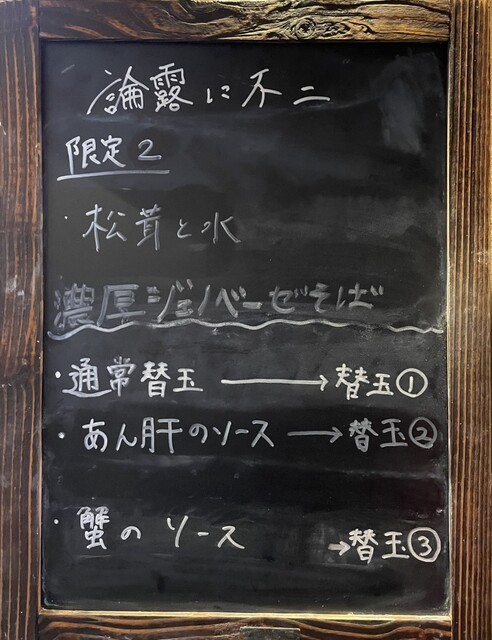 論露に不二
限定2
・松茸と水
濃厚ジェノベーゼそば
・通常替玉 → 替玉①
・あん肝のソース → 替玉②
・蟹のソース → 替玉③